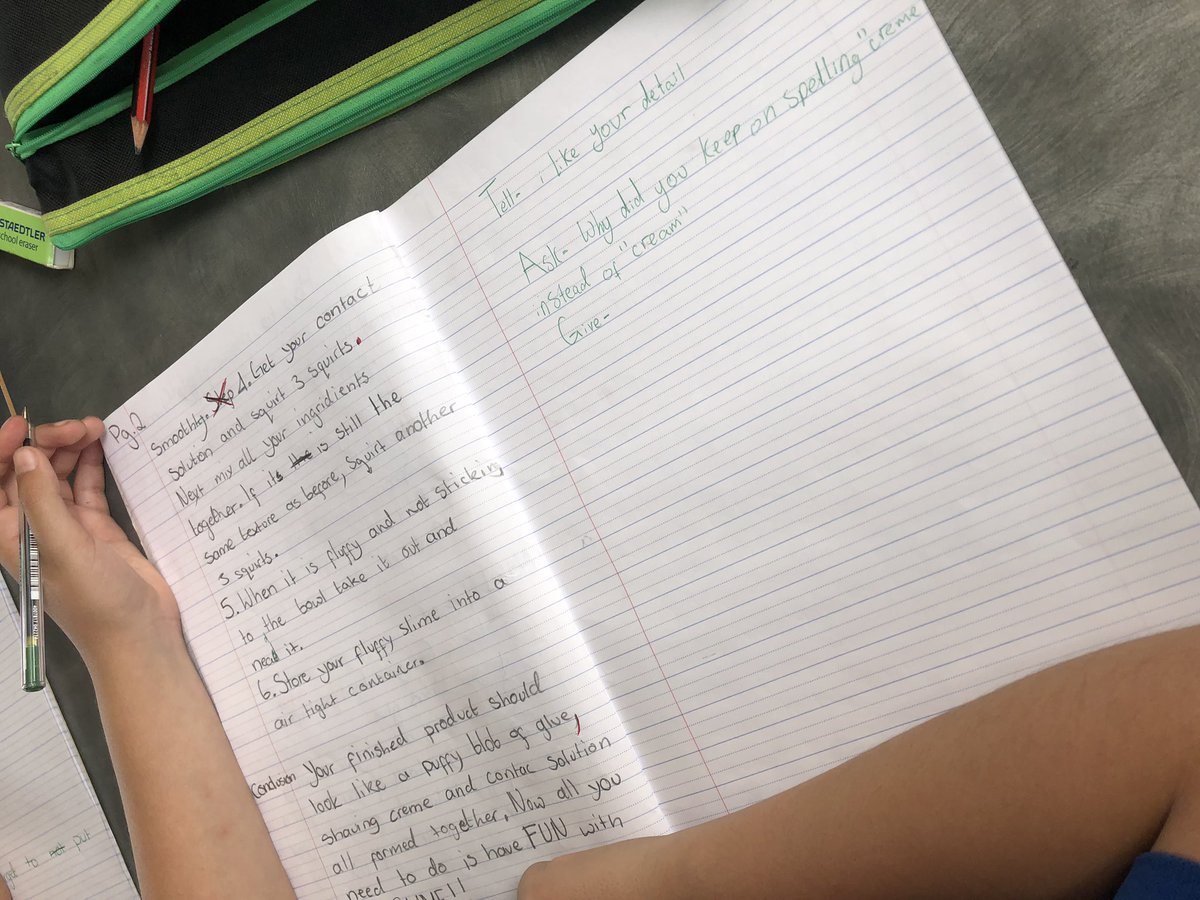 STAEDTLER
school eraser
Pg.2
Smoothly. Step 4. Get your contact
solution and squirt 3 squirts.
Next mix all your ingridients
together. If its the is still the
same texture as before, squirt another
3 squirts.
5. When it is fluffy and not sticking
to the bowl take it out and
it.
6. Store your fluffy slime into a
air tight container.
Conclusion Your finished product should
look like a puffy blob of glue,
shaving creme and contac solution
all formed together. Now all you
need to do is have FUN with
Tell- i like your detail
Ask- Why did you keep on spelling "creme
instead of "cream"
Give-
to not put